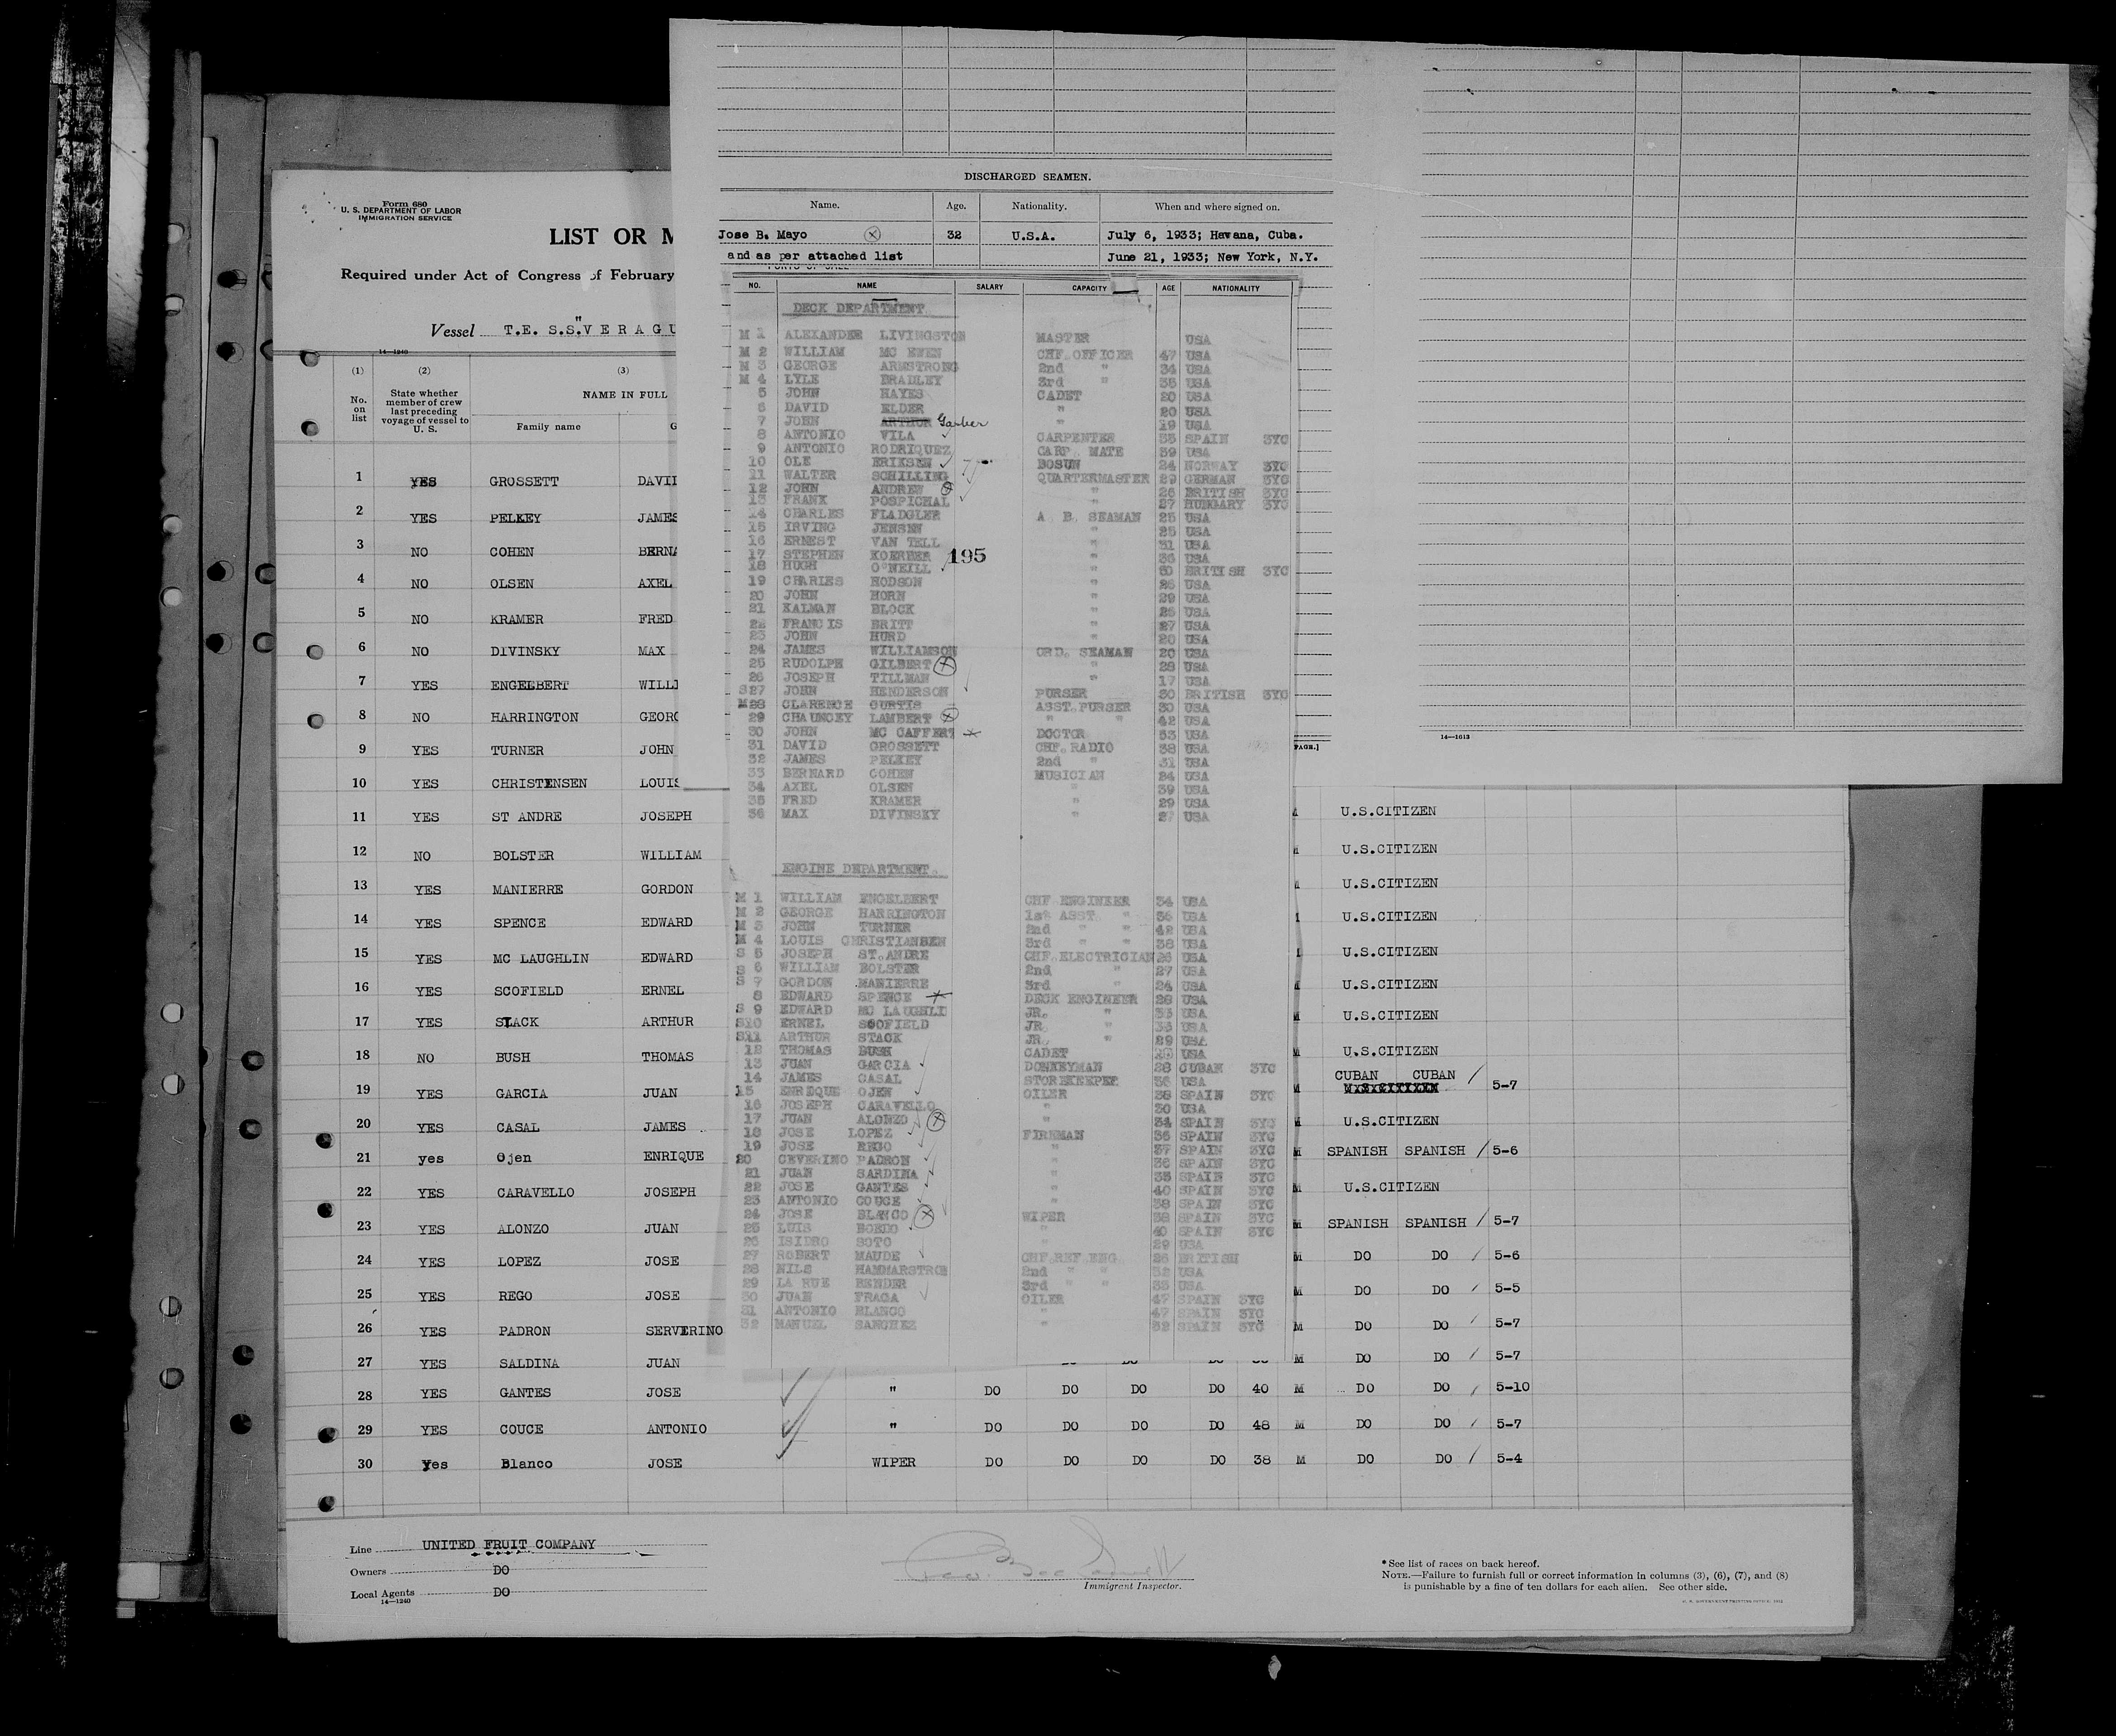 Form 680
U. S. DEPARTMENT OF LABOR
IMMIGRATION SERVICE
LIST OR M
Required under Act of Congress of February
Vessel T.E. S.S."V E R A G U
14—1240
(1) (2) (3)
No. on list
State whether member of crew last preceding voyage of vessel to U. S.
NAME IN FULL
Family name G
1 YES GROSSETT DAVI
2 YES PELKEY JAMES
3 NO COHEN BERNA
4 NO OLSEN AXEL
5 NO KRAMER FRED
6 NO DIVINSKY MAX
7 YES ENGELBERT WILLI
8 NO HARRINGTON GEORG
9 YES TURNER JOHN
10 YES CHRISTENSEN LOUIS
11 YES ST ANDRE JOSEPH U.S.CITIZEN
12 NO BOLSTER WILLIAM U.S.CITIZEN
13 YES MANIERRE GORDON U.S.CITIZEN
14 YES SPENCE EDWARD U.S.CITIZEN
15 YES MC LAUGHLIN EDWARD U.S.CITIZEN
16 YES SCOFIELD ERNEL U.S.CITIZEN
17 YES STACK ARTHUR U.S.CITIZEN
18 NO BUSH THOMAS M U.S.CITIZEN
19 YES GARCIA JUAN M CUBAN CUBAN / 5-7
20 YES CASAL JAMES M U.S.CITIZEN
21 yes Ojen ENRIQUE M SPANISH SPANISH / 5-6
22 YES CARAVELLO JOSEPH M U.S.CITIZEN
23 YES ALONZO JUAN M SPANISH SPANISH / 5-7
24 YES LOPEZ JOSE M DO DO / 5-6
25 YES REGO JOSE M DO DO / 5-5
26 YES PADRON SERVERINO M DO DO / 5-7
27 YES SALDINA JUAN M DO DO / 5-7
28 YES GANTES JOSE " DO DO DO DO 40 M DO DO / 5-10
29 YES COUCE ANTONIO " DO DO DO DO 48 M DO DO / 5-7
30 Yes Blanco JOSE WIPER DO DO DO DO 38 M DO DO / 5-4
Line UNITED FRUIT COMPANY
Owners DO
Local Agents DO
14—1240
Immigrant Inspector.
* See list of races on back hereof.
NOTE.—Failure to furnish full or correct information in columns (3), (6), (7), and (8)
is punishable by a fine of ten dollars for each alien. See other side.
DISCHARGED SEAMEN.
Name. Age. Nationality. When and where signed on.
Jose B. Mayo 32 U.S.A. July 6, 1933; Havana, Cuba.
and as per attached list June 21, 1933; New York, N.Y.
NO. NAME SALARY CAPACITY AGE NATIONALITY
DECK DEPARTMENT
M 1 ALEXANDER LIVINGSTON MASTER USA
M 2 WILLIAM MC EWEN CHF.OFFICER 47 USA
M 3 GEORGE ARMSTRONG 2nd " 34 USA
M 4 LYLE BRADLEY 3rd " 35 USA
5 JOHN HAYES CADET 20 USA
6 DAVID ELDER " 20 USA
7 JOHN ARTHUR Garber " 19 USA
8 ANTONIO VILA CARPENTER 35 SPAIN 3YC
9 ANTONIO RODRIQUEZ CARP. MATE 39 USA
10 OLE ERIKSEN BOSUN 24 NORWAY 3YC
11 WALTER SCHILLING QUARTERMASTER 29 GERMAN 3YC
12 JOHN ANDREW " 26 BRITISH 3YC
13 FRANK POSPICHAL " 27 HUNGARY 3YC
14 CHARLES FLADGLER A. B. SEAMAN 25 USA
15 IRVING JENSEN " 25 USA
16 ERNEST VAN TELL " 31 USA
17 STEPHEN KOERBER 195 " 36 USA
18 HUGH O'NEILL " 50 BRITISH 3YC
19 CHARLES HODSON " 26 USA
20 JOHN HORN " 29 USA
21 KALMAN BLOCK " 25 USA
22 FRANCIS BRITT " 27 USA
23 JOHN HURD " 20 USA
24 JAMES WILLIAMSON ORD. SEAMAN 20 USA
25 RUDOLPH GILBERT " 28 USA
26 JOSEPH TILLMAN " 17 USA
S27 JOHN HENDERSON PURSER 30 BRITISH 3YC
M28 CLARENCE CURTIS ASST.PURSER 30 USA
29 CHAUNCEY LAMBERT " " 42 USA
30 JOHN MC CAFFERT DOCTOR 53 USA
31 DAVID GROSSETT CHF.RADIO 38 USA
32 JAMES PELKEY 2nd " 31 USA
33 BERNARD COHEN MUSICIAN 24 USA
34 AXEL OLSEN " 39 USA
35 FRED KRAMER " 29 USA
36 MAX DIVINSKY " 27 USA
ENGINE DEPARTMENT.
M 1 WILLIAM ENGELBERT CHF ENGINEER 34 USA
M 2 GEORGE HARRINGTON 1st ASST " 36 USA
M 3 JOHN TURNER 2nd " " 42 USA
M 4 LOUIS CHRISTIANSEN 3rd " " 38 USA
S 5 JOSEPH ST.ANDRE CHF.ELECTRICIAN 26 USA
S 6 WILLIAM BOLSTER 2nd " 27 USA
S 7 GORDON MANIERRE 3rd " 24 USA
8 EDWARD SPENCE DECK ENGINEER 28 USA
S 9 EDWARD MC LAUGHLI JR. " 33 USA
S10 ERNEL SCOFIELD JR. " 33 USA
S11 ARTHUR STACK JR. " 29 USA
12 THOMAS BUSH CADET USA
13 JUAN GARCIA DONKEYMAN 28 CUBAN 3YC
14 JAMES CASAL STOREKEEPER 36 USA
15 ENREQUE OJEN OILER 38 SPAIN 3YC
16 JOSEPH CARAVELLO " 30 USA
17 JUAN ALONZO " 34 SPAIN 3YC
18 JOSE LOPEZ FIREMAN 36 SPAIN 3YC
19 JOSE REGO " 37 SPAIN 3YC
20 CEVERINO PADRON " 36 SPAIN 3YC
21 JUAN SARDINA " 35 SPAIN 3YC
22 JOSE GANTES " 40 SPAIN 3YC
23 ANTONIO COUCE " 38 SPAIN 3YC
24 JOSE BLANCO WIPER 38 SPAIN 3YC
25 LUIS BOEDO " 40 SPAIN 3YC
26 ISIDRO SOTO " 29 USA
27 ROBERT MAUDE CHF.REF.ENG 26 BRITISH
28 NILS HAMMARSTROM 2nd " " 32 USA
29 LA RUE BENDER 3rd " " 33 USA
30 JUAN FRAGA OILER 47 SPAIN 3YC
31 ANTONIO BLANCO " 47 SPAIN 3YC
32 MANUEL SANCHEZ " 32 SPAIN 3YC
PAGE.]
14—1613